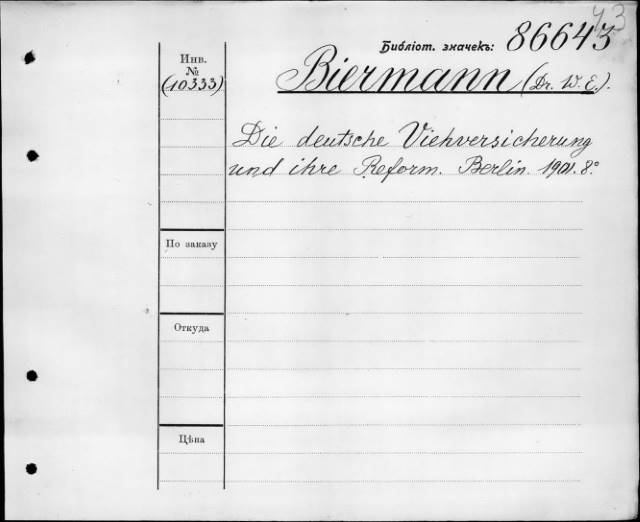 43
Библіот. значекъ: 86643
Инв.
№
(10333)
Biermann (Dr. W. E.).
Die deutsche Viehversicherung
und ihre Reform. Berlin. 1901. 8.°
По заказу
Откуда
Цѣна